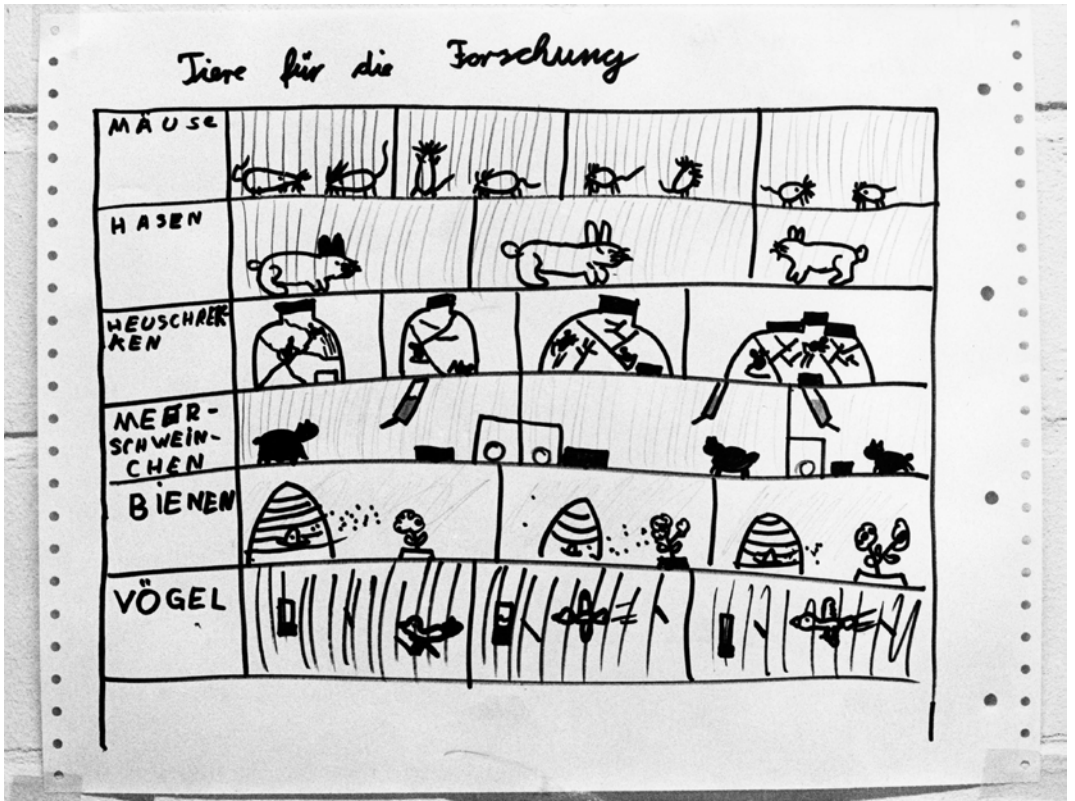 Tiere für die Forschung
MÄUSE
HASEN
HEUSCHREK-
KEN
MEER-
SCHWEIN-
CHEN
BIENEN
VÖGEL